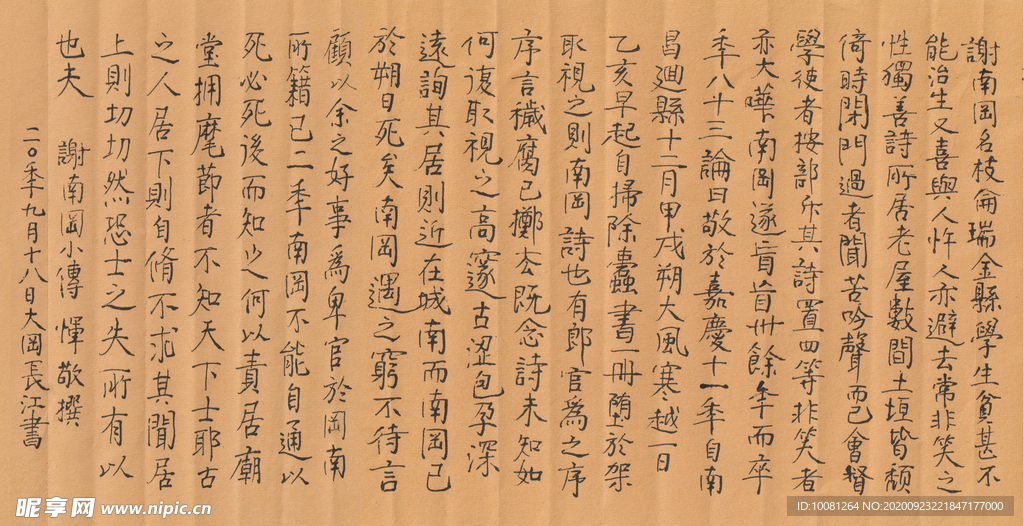 謝南岡名枝侖瑞金縣學生貧甚不
能治生又喜與人忤人亦避去常非笑之
性獨善詩所居老屋數間土垣皆頹
倚時閉門過者聞苦吟聲而已會督
學使者按部斥其詩置四等非笑者
亦大嘩南岡遂盲盲卅餘年而卒
年八十三論曰敬於嘉慶十一年自南
昌廻縣十二月甲戌朔大風寒越一日
乙亥早起自掃除蠹書一冊墮於架
取視之則南岡詩也有郎官為之序
序言穢腐已擲去既念詩未知如
何復取視之高邃古澀包孕深
遠詢其居則近在城南而南岡已
於朔日死矣南岡遇之窮不待言
顧以余之好事為卑官於岡南
所籍已二年南岡不能自通以
死必死後而知之何以責居廟
堂拥麾節者不知天下士耶古
之人居下則自脩不求其聞居
上則切切然恐士之失所有以
也夫 謝南岡小傳 惲敬撰
二〇年九月十八日大岡長江書
昵享网 www.nipic.cn
ID:10081264 NO:20200923221847177000